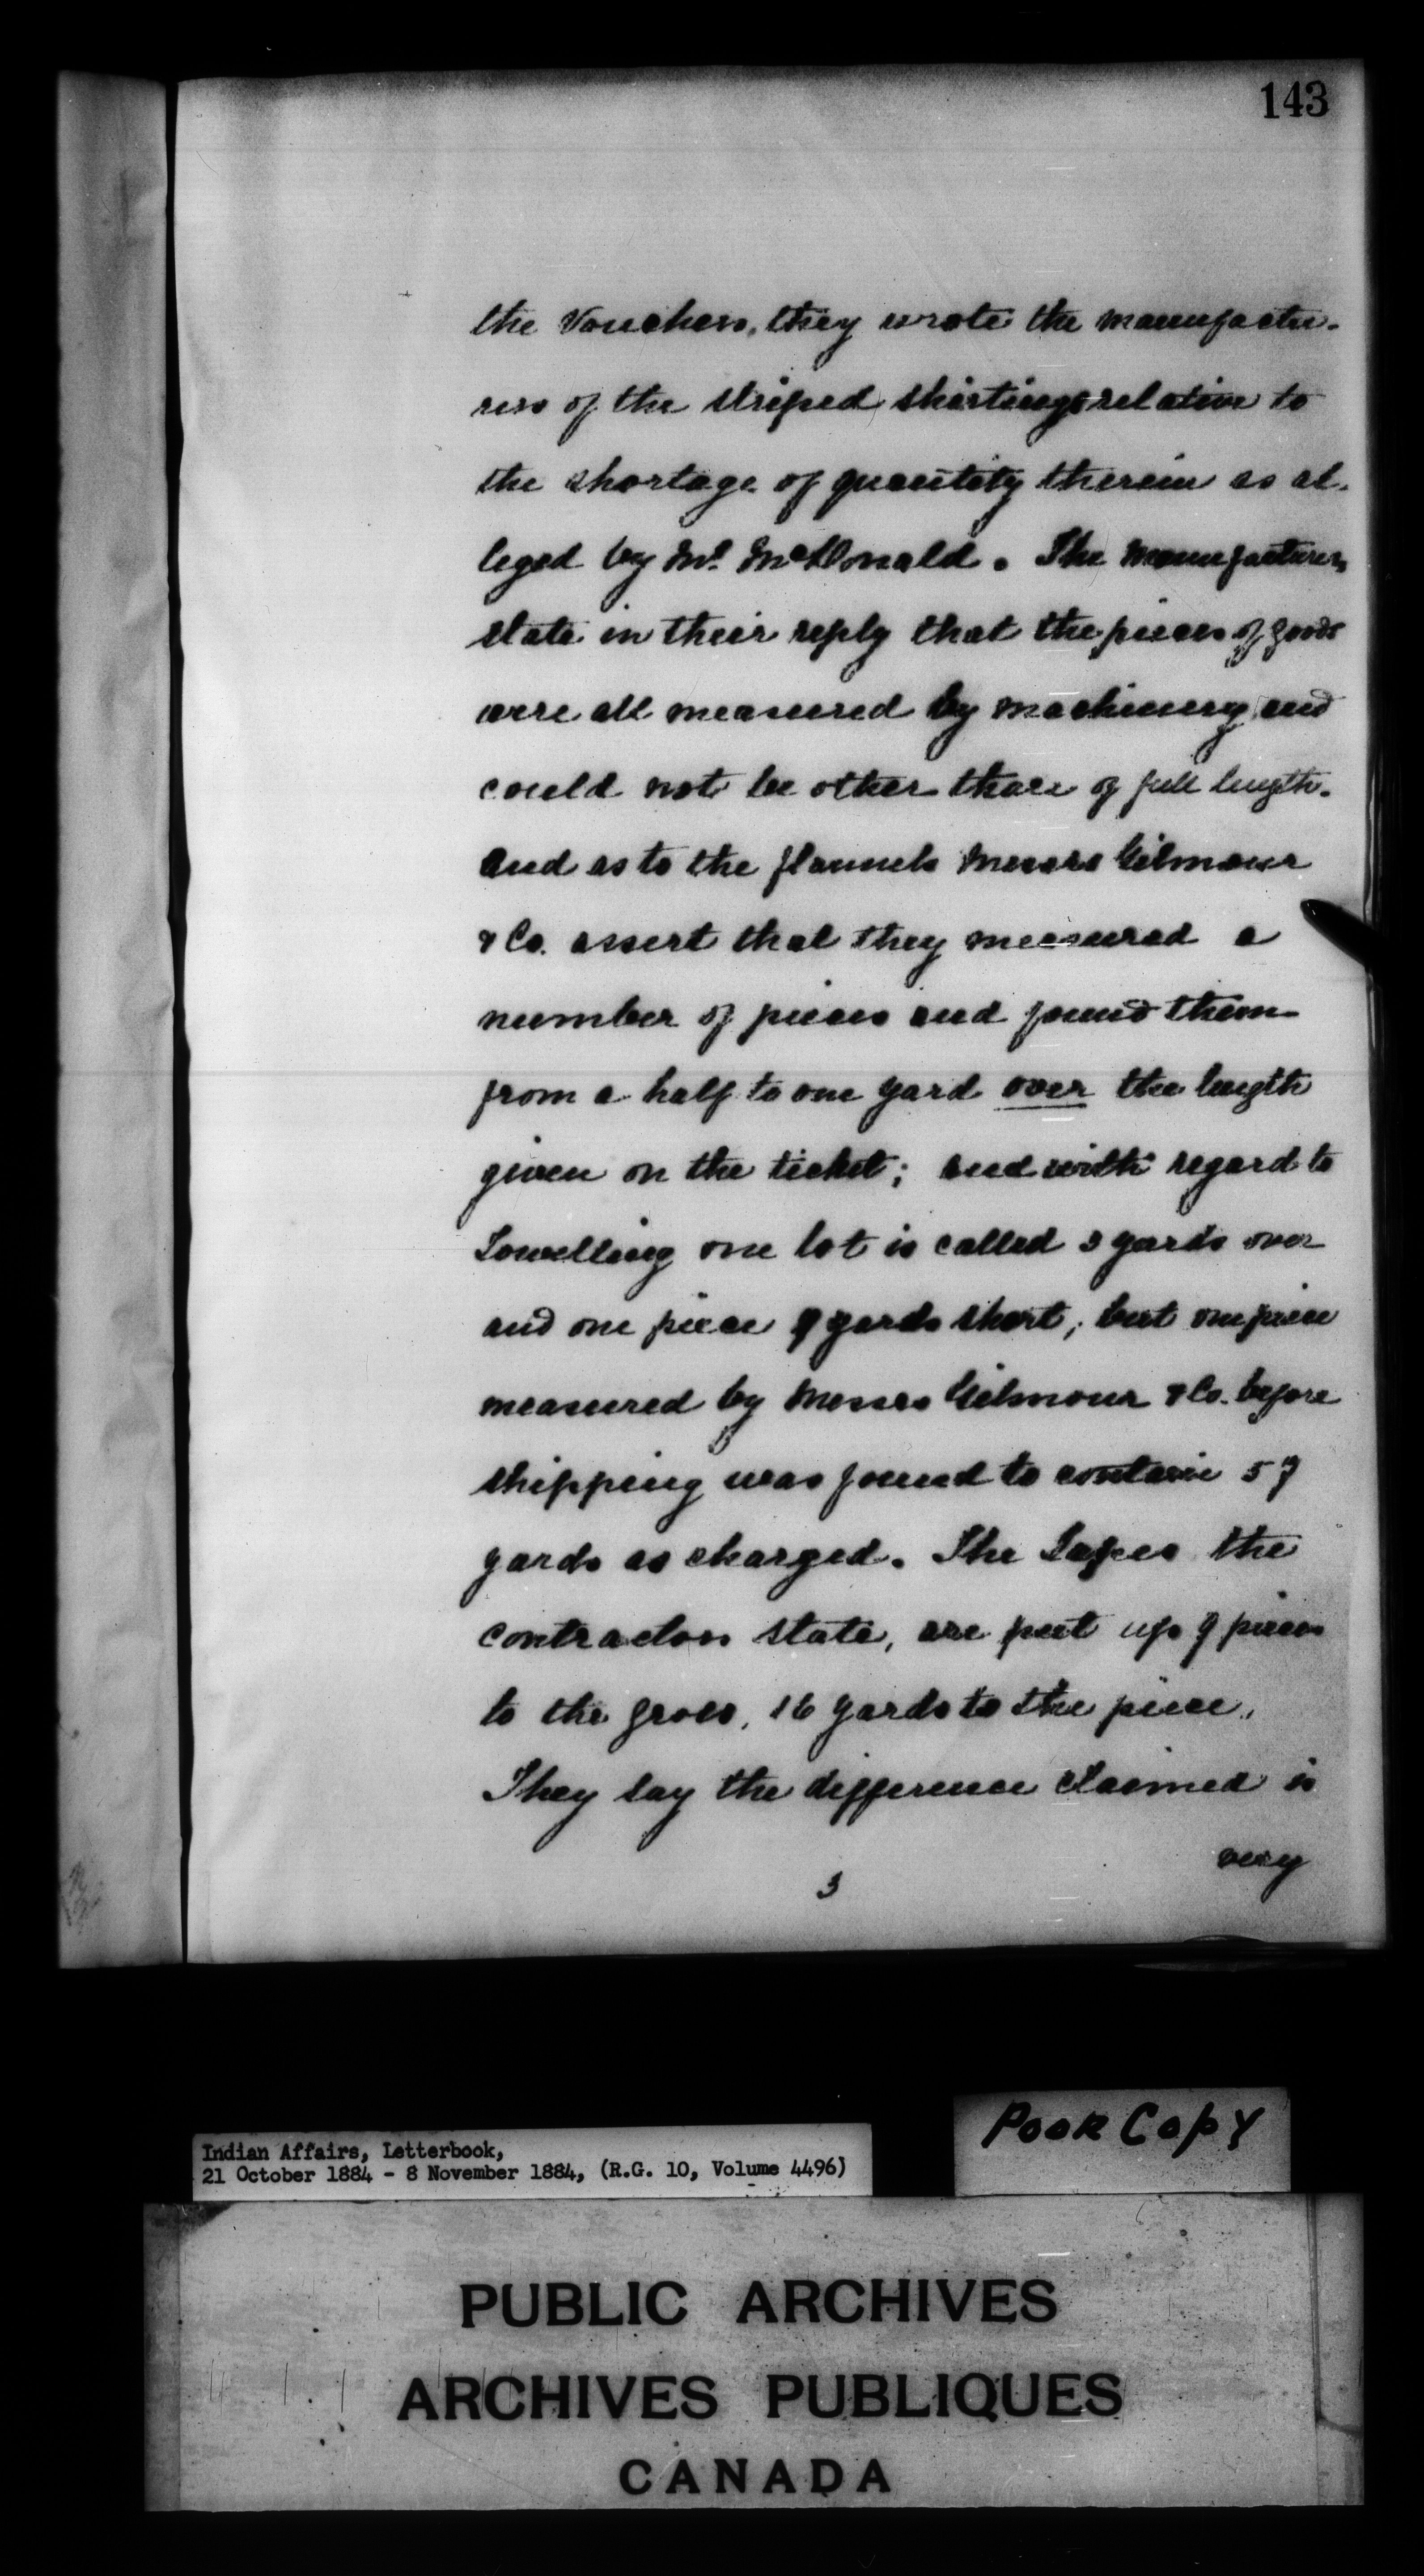 143
the Vouchers, they wrote the manufactu-
rers of the striped shirtings relative to
the shortage of quantity therein as al-
leged by Mr. McDonald. The Manufacturers
state in their reply that the pieces of goods
were all measured by machinery and
could not be other than of full length.
And as to the flannels Messrs Gilmour
& Co. assert that they measured a
number of pieces and found them
from a half to one yard over the length
given on the ticket; and with regard to
Towelling one lot is called 3 yards over
and one piece 9 yards short, but one piece
measured by Messrs Gilmour & Co. before
shipping was found to contain 59
yards as charged. The Tapes the
contractors state, are put up 9 pieces
to the gross, 16 yards to the piece.
They say the difference claimed is
very
3
Poor Copy
Indian Affairs, Letterbook,
21 October 1884 - 8 November 1884, (R.G. 10, Volume 4496)
PUBLIC ARCHIVES
ARCHIVES PUBLIQUES
CANADA